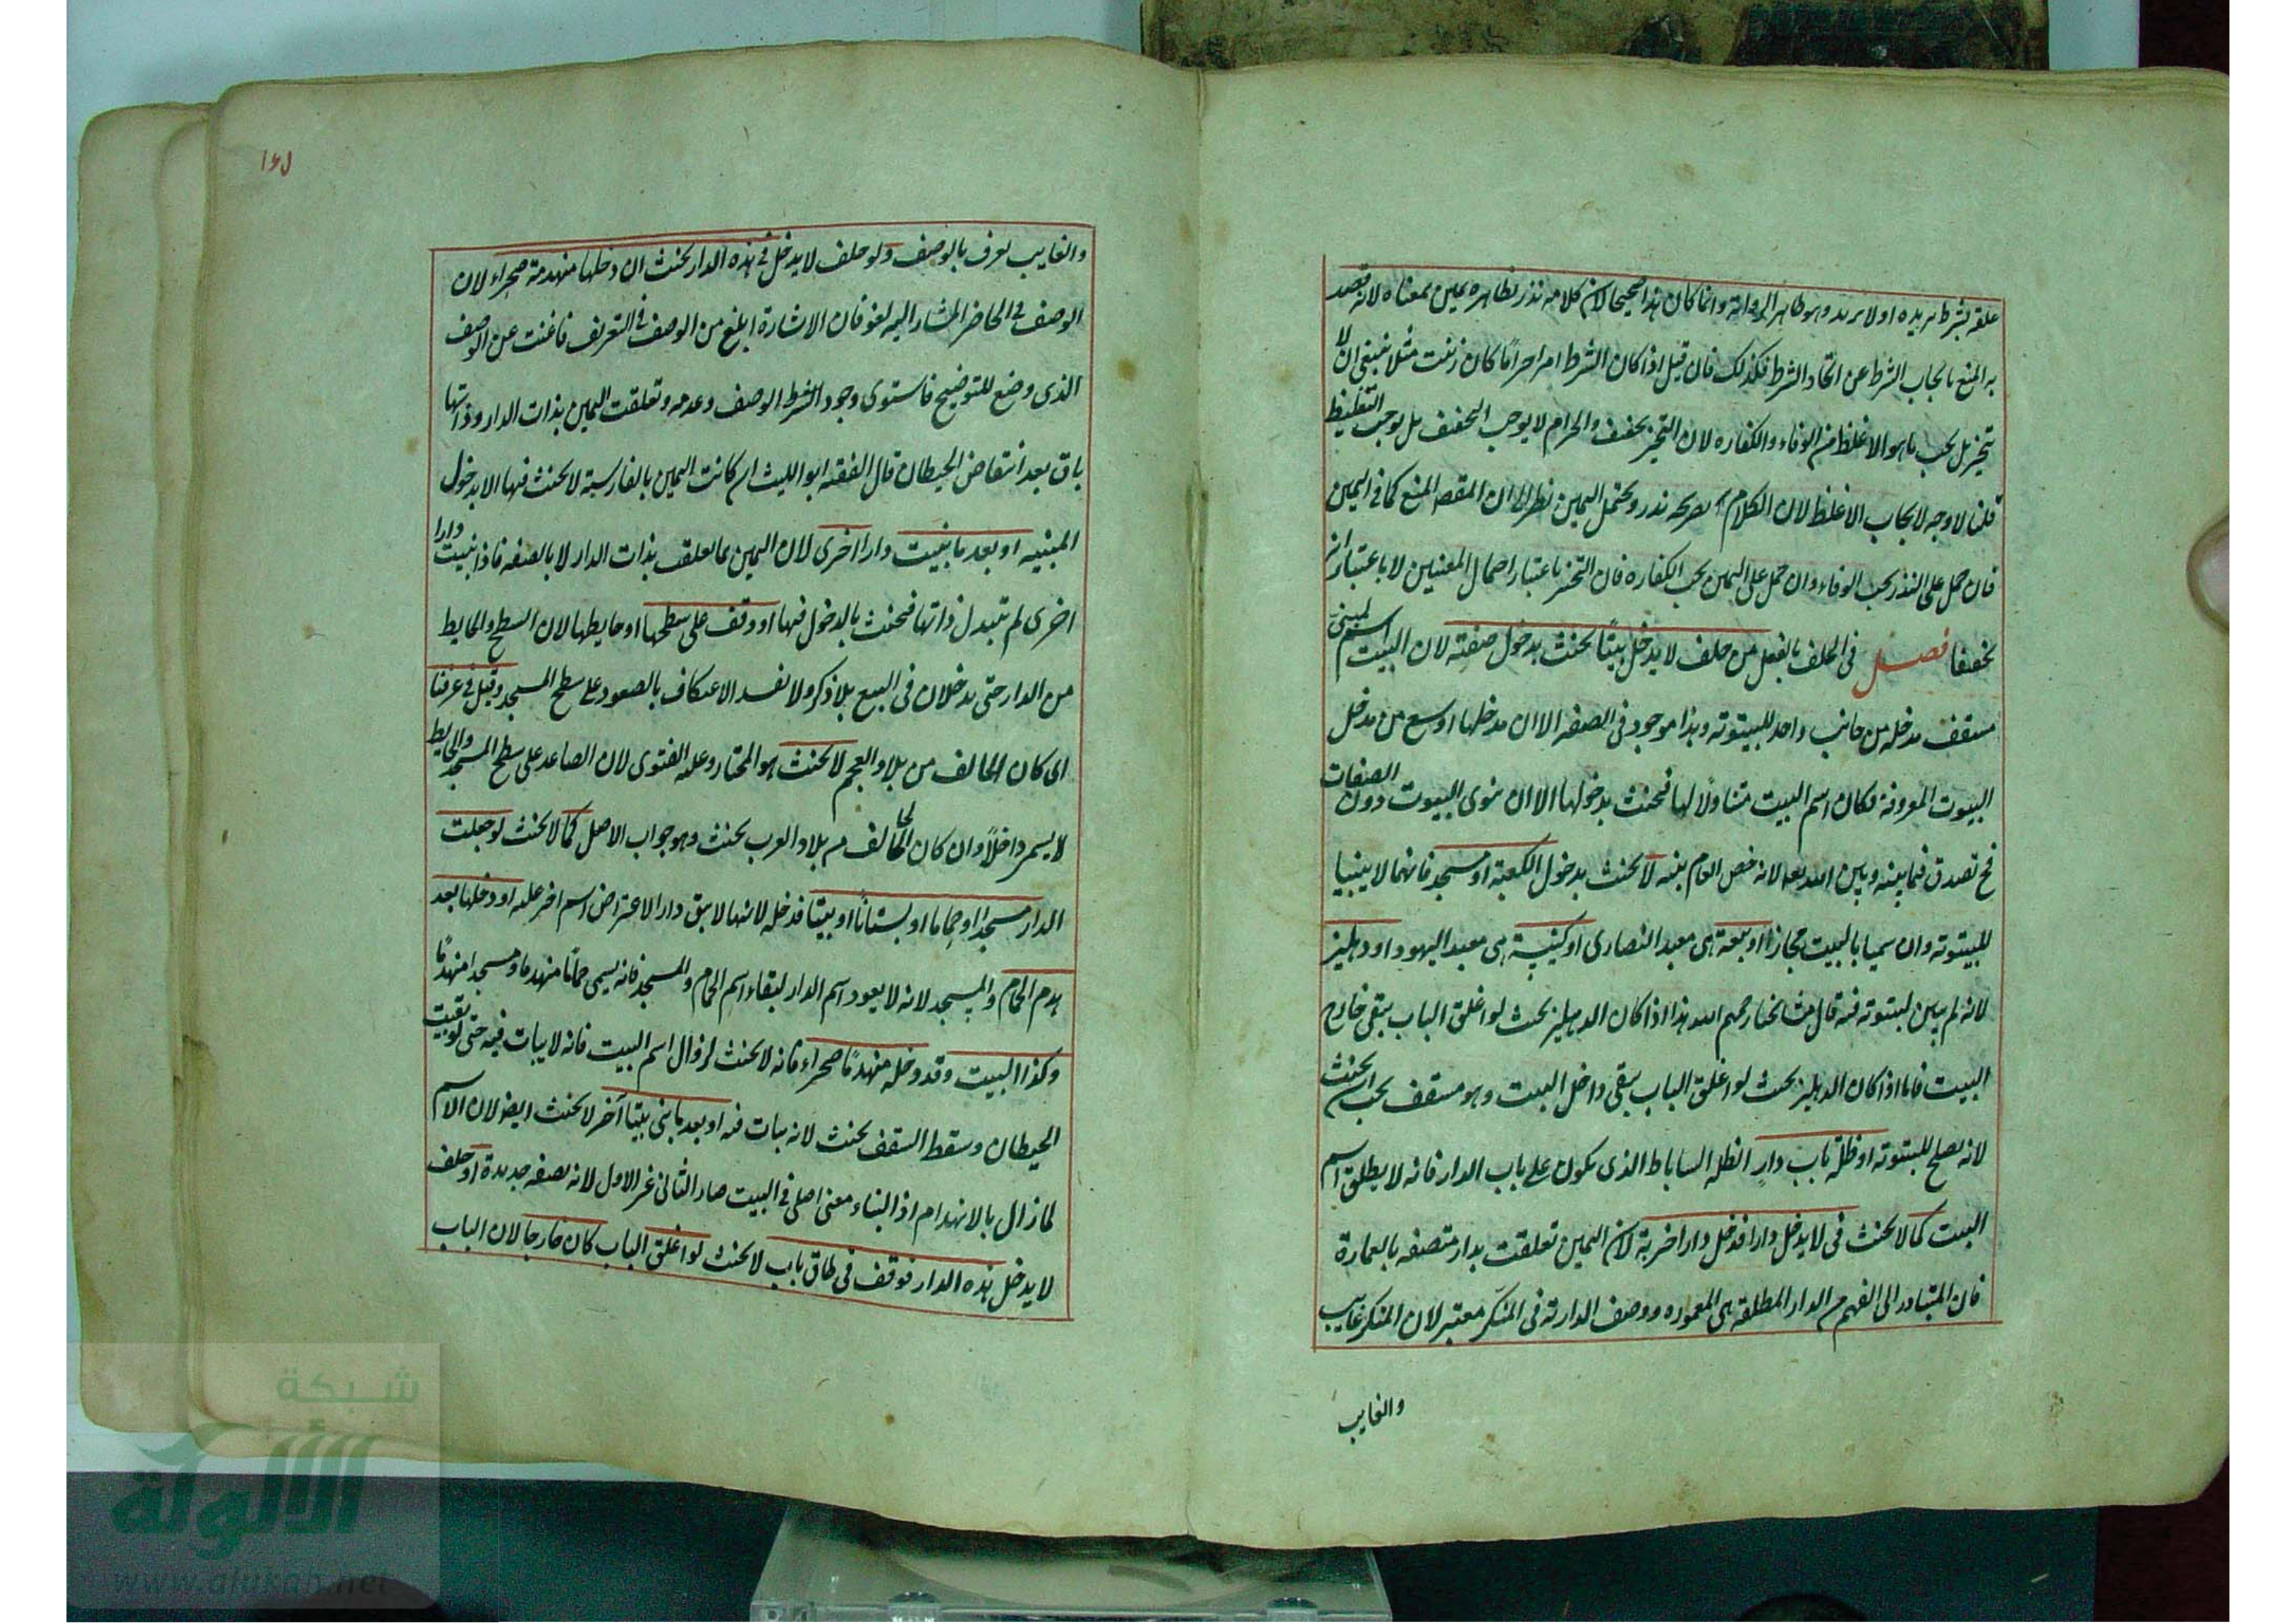 علقه بشرط يريده او لا يريد وهو ظاهر الرواية وانما كان هذا صحيحا لان كلامه نذر بظاهره يمين بمعناه لانه قصد
به المنع بايجاب الشرط عن اتخاد الشرط فكذلك فان قيل اذا كان الشرط امرا حراما كان زنيت مثلا ينبغي ان لا
يتخير بل يجب ما هو الاغلظ من الوفاء والكفاره لان التخير تخفيف والحرام لا يوجب التخفيف بل يوجب التغليظ
قلنا لا وجه لايجاب الاغلظ لان الكلام بصريحه نذر ويحتمل اليمين نظرا الى ان المقصد المنع كما في اليمين
فان حمل على النذر يجب الوفاء وان حمل على اليمين يجب الكفاره فان التخير باعتبار احتمال المعنيين لا باعتبار ان
تخفيفا فصل في الحلف بالفعل من حلف لا يدخل بيتًا يحنث بدخول صفته لان البيت اسم لمبنى
مسقف مدخله من جانب واحد للبيتوته وهذا موجود في الصفه الا ان مدخلها اوسع من مدخل
البيوت المعروفة فكان اسم البيت متناولًا لها فيحنث بدخولها الا ان ينوى البيوت دون الصفات
فح تصدق فيما بينه وبين الله تعه لانه خص العام بنيته لا يحنث بدخول الكعبة او مسجد فانهما لا يبنيا
للبيتوته وان سميا بالبيت مجازا او بيعة هي معبد النصارى او كنيسة هي معبد اليهود او دهليز
لانه لم يبين لبيتوته فيه قال مشايخنا رحمهم الله هذا اذا كان الدهليز بحيث لو اغلق الباب يبقى خارج
البيت فاما اذا كان الدهليز بحيث لو اغلق الباب يبقى داخل البيت وهو مسقف يجب ان يحنث
لانه يصلح للبيتوته او ظلة باب دارٍ الظله الساباط الذى يكون على باب الدار فانه لا يطلق اسم
البيت كما لا يحنث في لا يدخل دارا فدخل دارا خربة لان اليمين تعلقت بدار متصفه بالعمارة
فان المتبادر الى الفهم من الدار المطلقة هي المعموره ووصف الدارية في المنكّر معتبر لان المنكر غايب
والغايب
١٦٥
والغايب يعرف بالوصف ولو حلف لا يدخل في هذه الدار يحنث ان دخلها منهدمة صحراء لان
الوصف في الحاضر المشار اليه لغو فان الاشارة ابلغ من الوصف في التعريف فاغنت عن الوصف
الذى وضع للتوضيح فاستوى وجود الشرط الوصف وعدمه وتعلقت اليمين بذات الدار وذاتها
باق بعد انتقاض الحيطان قال الفقيه ابو الليث ان كانت اليمين بالفارسية لا يحنث فيها الا بدخول
المبنيه او بعد ما بنيت دارا اخرى لان اليمين لما تعلقت بذات الدار لا بالصفه فاذا بنيت دارا
اخرى لم تتبدل ذاتها فيحنث بالدخول فيها او وقف على سطحها او حايطها لان السطح والحايط
من الدار حتى يدخلان في البيع بلا ذكر ولا يفسد الاعتكاف بالصعود على سطح المسجد وقيل في عرفنا
اى كان الحالف من بلاد العجم لا يحنث هو المختار وعليه الفتوى لان الصاعد على سطح المسجد والحايط
لا يسمى داخلًا وان كان الحالف من بلاد العرب يحنث وهو جواب الاصل كما لا يحنث لو جعلت
الدار مسجدا او حماما او بستانا او بيتا فدخله لانها لا يبق دارا لاعتراض اسم اخر عليه او دخلها بعد
هدم الحمام والمسجد لانه لا يعود اسم الدار لبقاء اسم الحمام والمسجد فانه يسمى حمامًا منهدما ومسجدا منهدمًا
وكذا البيت وقد دخله منهدمًا صحراء فانه لا يحنث لزوال اسم البيت فانه لا يبات فيه حتى لو بقيت
الحيطان وسقط السقف يحنث لانه يبات فيه او بعد ما بنى بيتا آخر لا يحنث ايضا لان الاسم
لما زال بالانهدام اذ البناء معنى اصلي في البيت صار الثانى غير الاول لانه بصفه جديدة او حلف
لا يدخل هذه الدار فوقف في طاق باب لا يحنث لو اغلق الباب كان خارجا لان الباب
شبكة
الألوكة
www.alukah.net